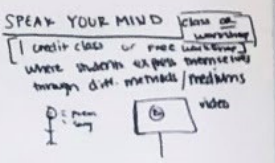 SPEAK YOUR MIND
class or
workshop
1 credit class or free workshop
where students express themselves
through diff. methods/mediums
: poem
: song
video